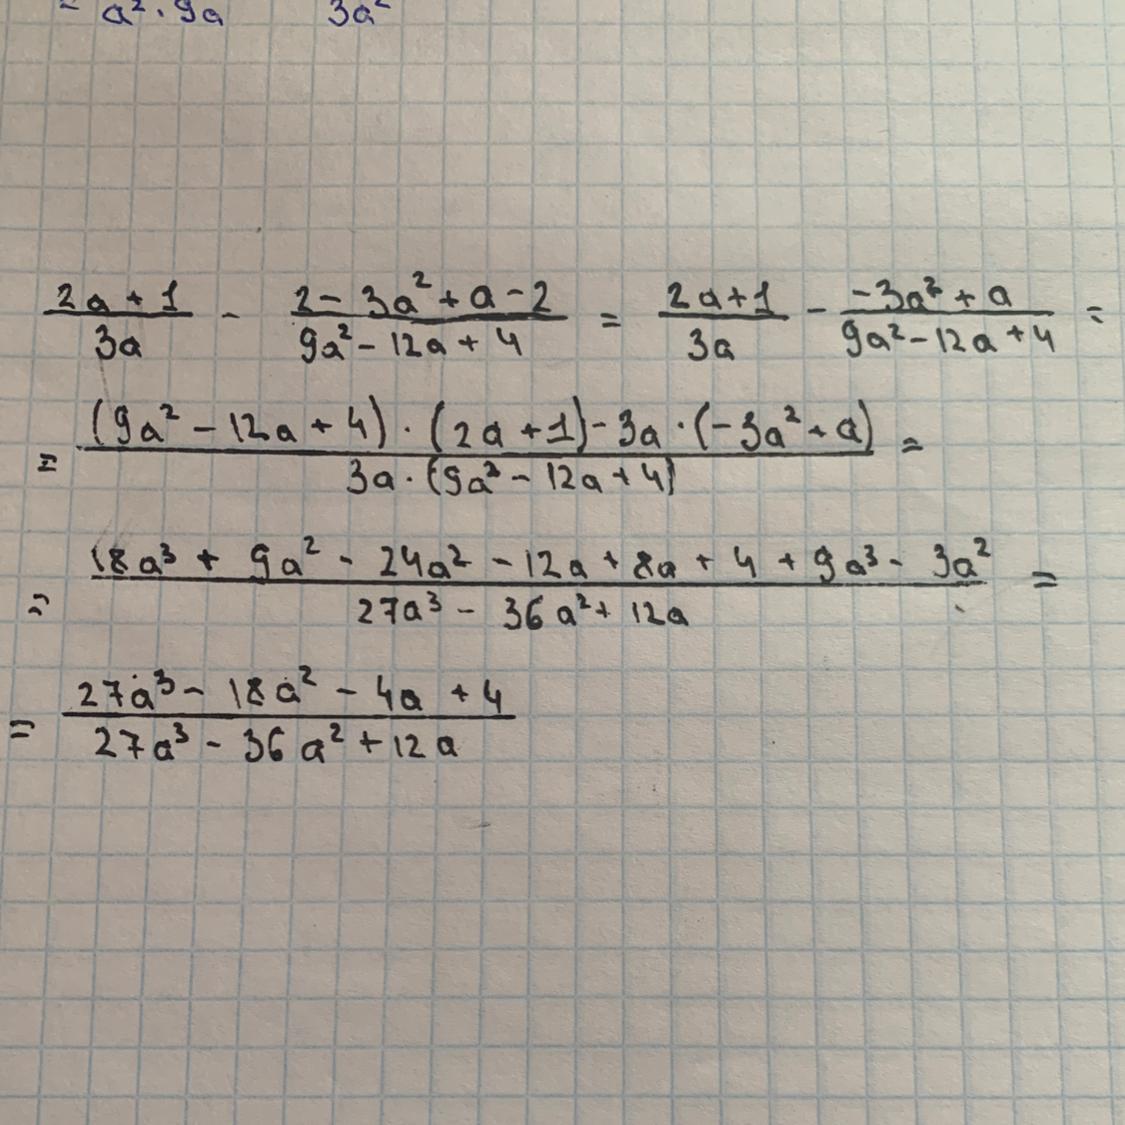 = a² · 9a    3a²
(2a + 1)/(3a) - (2 - 3a² + a - 2)/(9a² - 12a + 4) = (2a + 1)/(3a) - (-3a² + a)/(9a² - 12a + 4) =
= ((9a² - 12a + 4) · (2a + 1) - 3a · (-3a² + a))/(3a · (9a² - 12a + 4)) =
= (18a³ + 9a² - 24a² - 12a + 8a + 4 + 9a³ - 3a²)/(27a³ - 36a² + 12a) =
= (27a³ - 18a² - 4a + 4)/(27a³ - 36a² + 12a)